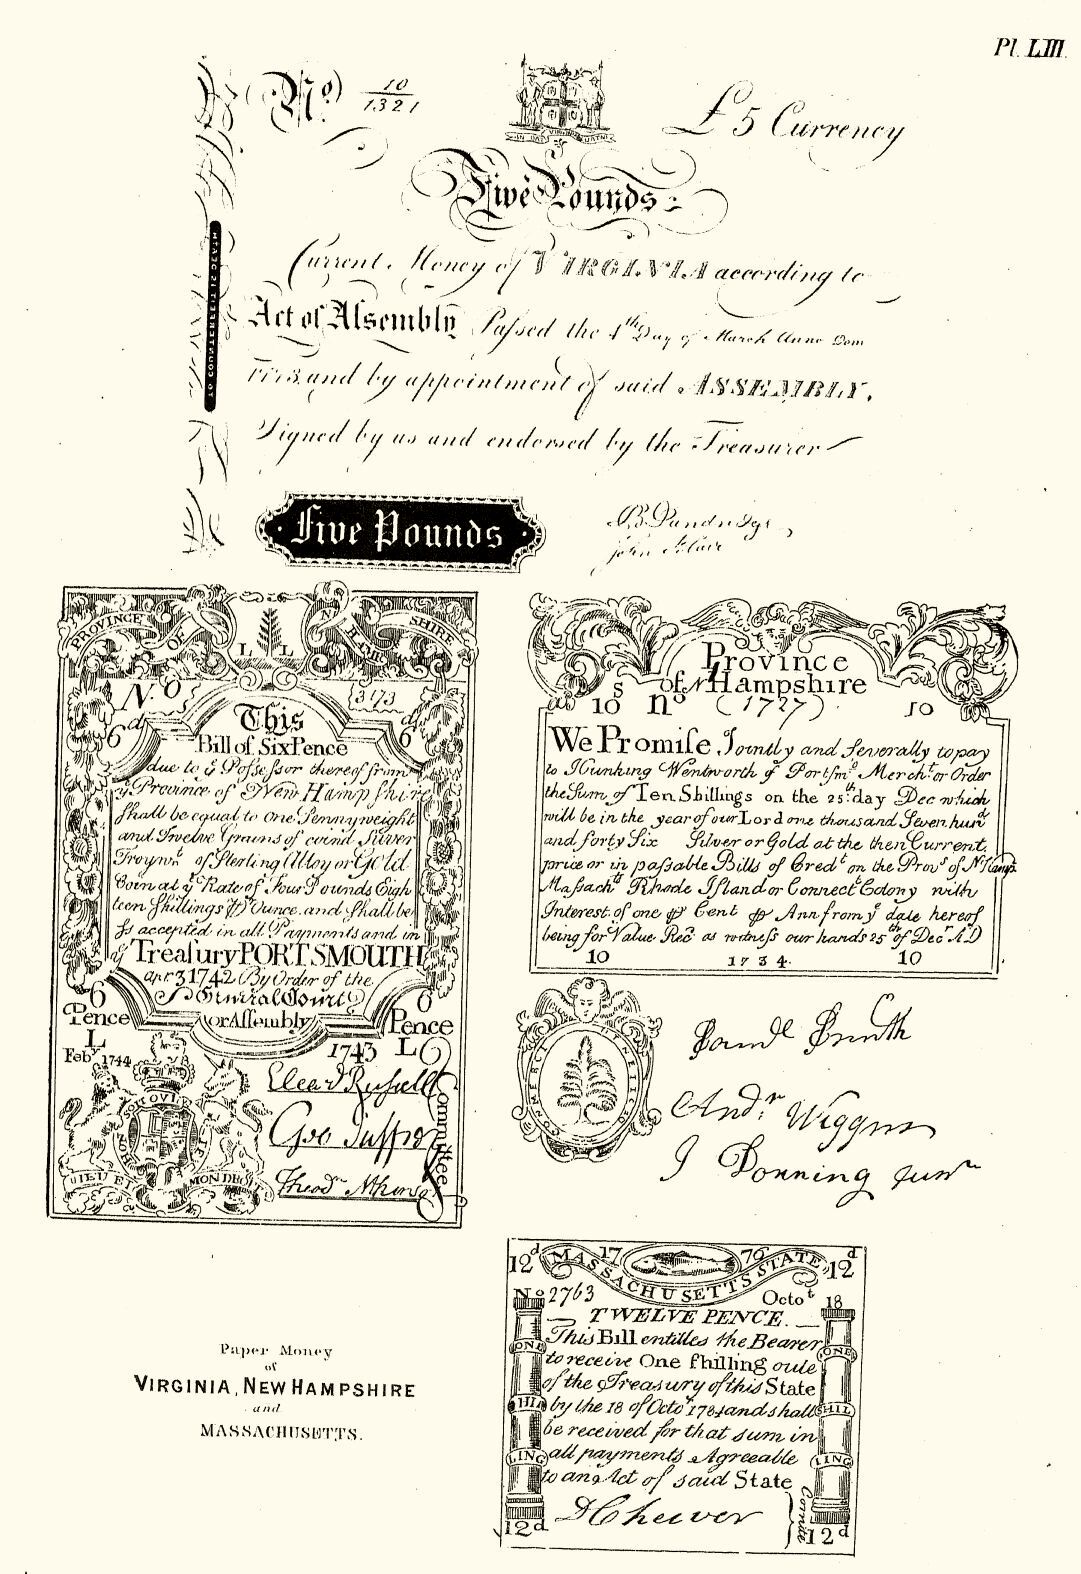 Pl. LIII.
No. 10
1321
£5 Currency
Five Pounds
Current Money of VIRGINIA according to
Act of Aſsembly Paſsed the 4th Day of March Anno Dom
1773. and by appointment of said ASSEMBLY,
Signed by us and endorsed by the Treasurer
TO COUNTERFEIT IS DEATH
Five Pounds
PROVINCE OF N HAMP SHIRE
L L
No 3173
6d 6d
This
Bill of Six Pence
due to ye Poſseſsor thereof from
ye Province of New Hampſhire
ſhall be equal to one Pennyweight
and Twelve Grains of coin'd Silver
Troy wt. of Sterling Alloy or Gold
Coin at ye Rate of Four Pounds Eigh
teen Shillings ⅌ Ounce. and ſhall be
ſs accepted in all Payments and in
ye Treaſury PORTSMOUTH
apr 3 1742 By Order of the
General Court
or Aſſembly
6 6
Pence Pence
L L
Feby 1744 1743
HONI SOIT QUI MAL Y
DIEU ET MON DROIT
Elear Ruſsell
Geo Jaffrey
Theodr Atkinson
Committee
Province
of N Hampshire
10s No (1727) 10
We Promiſe, Jointly and ſeverally to pay
to H Hunking Wentworth of Portſmo Mercht. or Order
the Sum of Ten Shillings on the 25th. day Dec which
will be in the year of our Lord one thousand Seven hund
and forty Six Silver or Gold at the then Current
price or in paſsable Bills of Credt on the Provs of N Hamps
Maſsachts Rhode Iſland or Connectt Colony with
Interest of one ⅌ Cent ⅌ Ann from ye date hereof
being for Value Recd as witneſs our hands 25th of Decr A D
10 1734. 10
Andr Wiggin
J Downing Junr
12d 17 76 12d
MASSACHUSETTS STATE
No 2763 Octot 18
TWELVE PENCE.
This Bill entitles the Bearer
to receive One ſhilling oute
of the Treasury of this State
by the 18 of Octot 1784 and shall
be received for that sum in
all payments Agreeable
to an Act of said State
ONE SHIL LING
ONE SHIL LING
D Cheever
Comite
12d 12d
Paper Money
of
VIRGINIA, NEW HAMPSHIRE
and
MASSACHUSETTS.